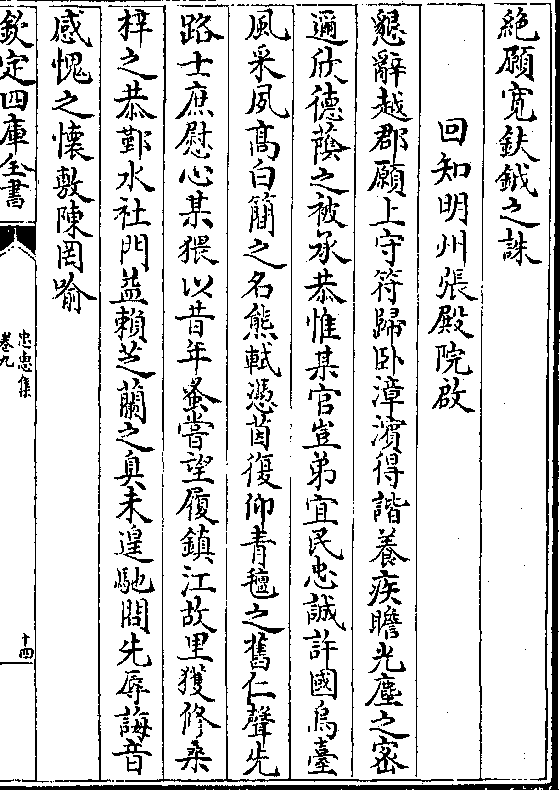 絶願寛鈇鉞之誅
回知明州張殿院啟
懇辭越郡願上守符歸卧漳濱得諧養疾瞻光塵之密
邇欣德蔭之被承恭惟某官豈弟宜民忠誠許國烏臺
風采夙髙白簡之名熊軾憑茵復仰青氊之舊仁聲先
路士庶慰心某猥以昔年蚤嘗望履鎮江故里獲修桑
梓之恭鄞水社門益賴芝蘭之臭未遑馳問先辱誨音
感愧之懷敷陳罔喻
欽定四庫全書
忠惠集
卷九
十四